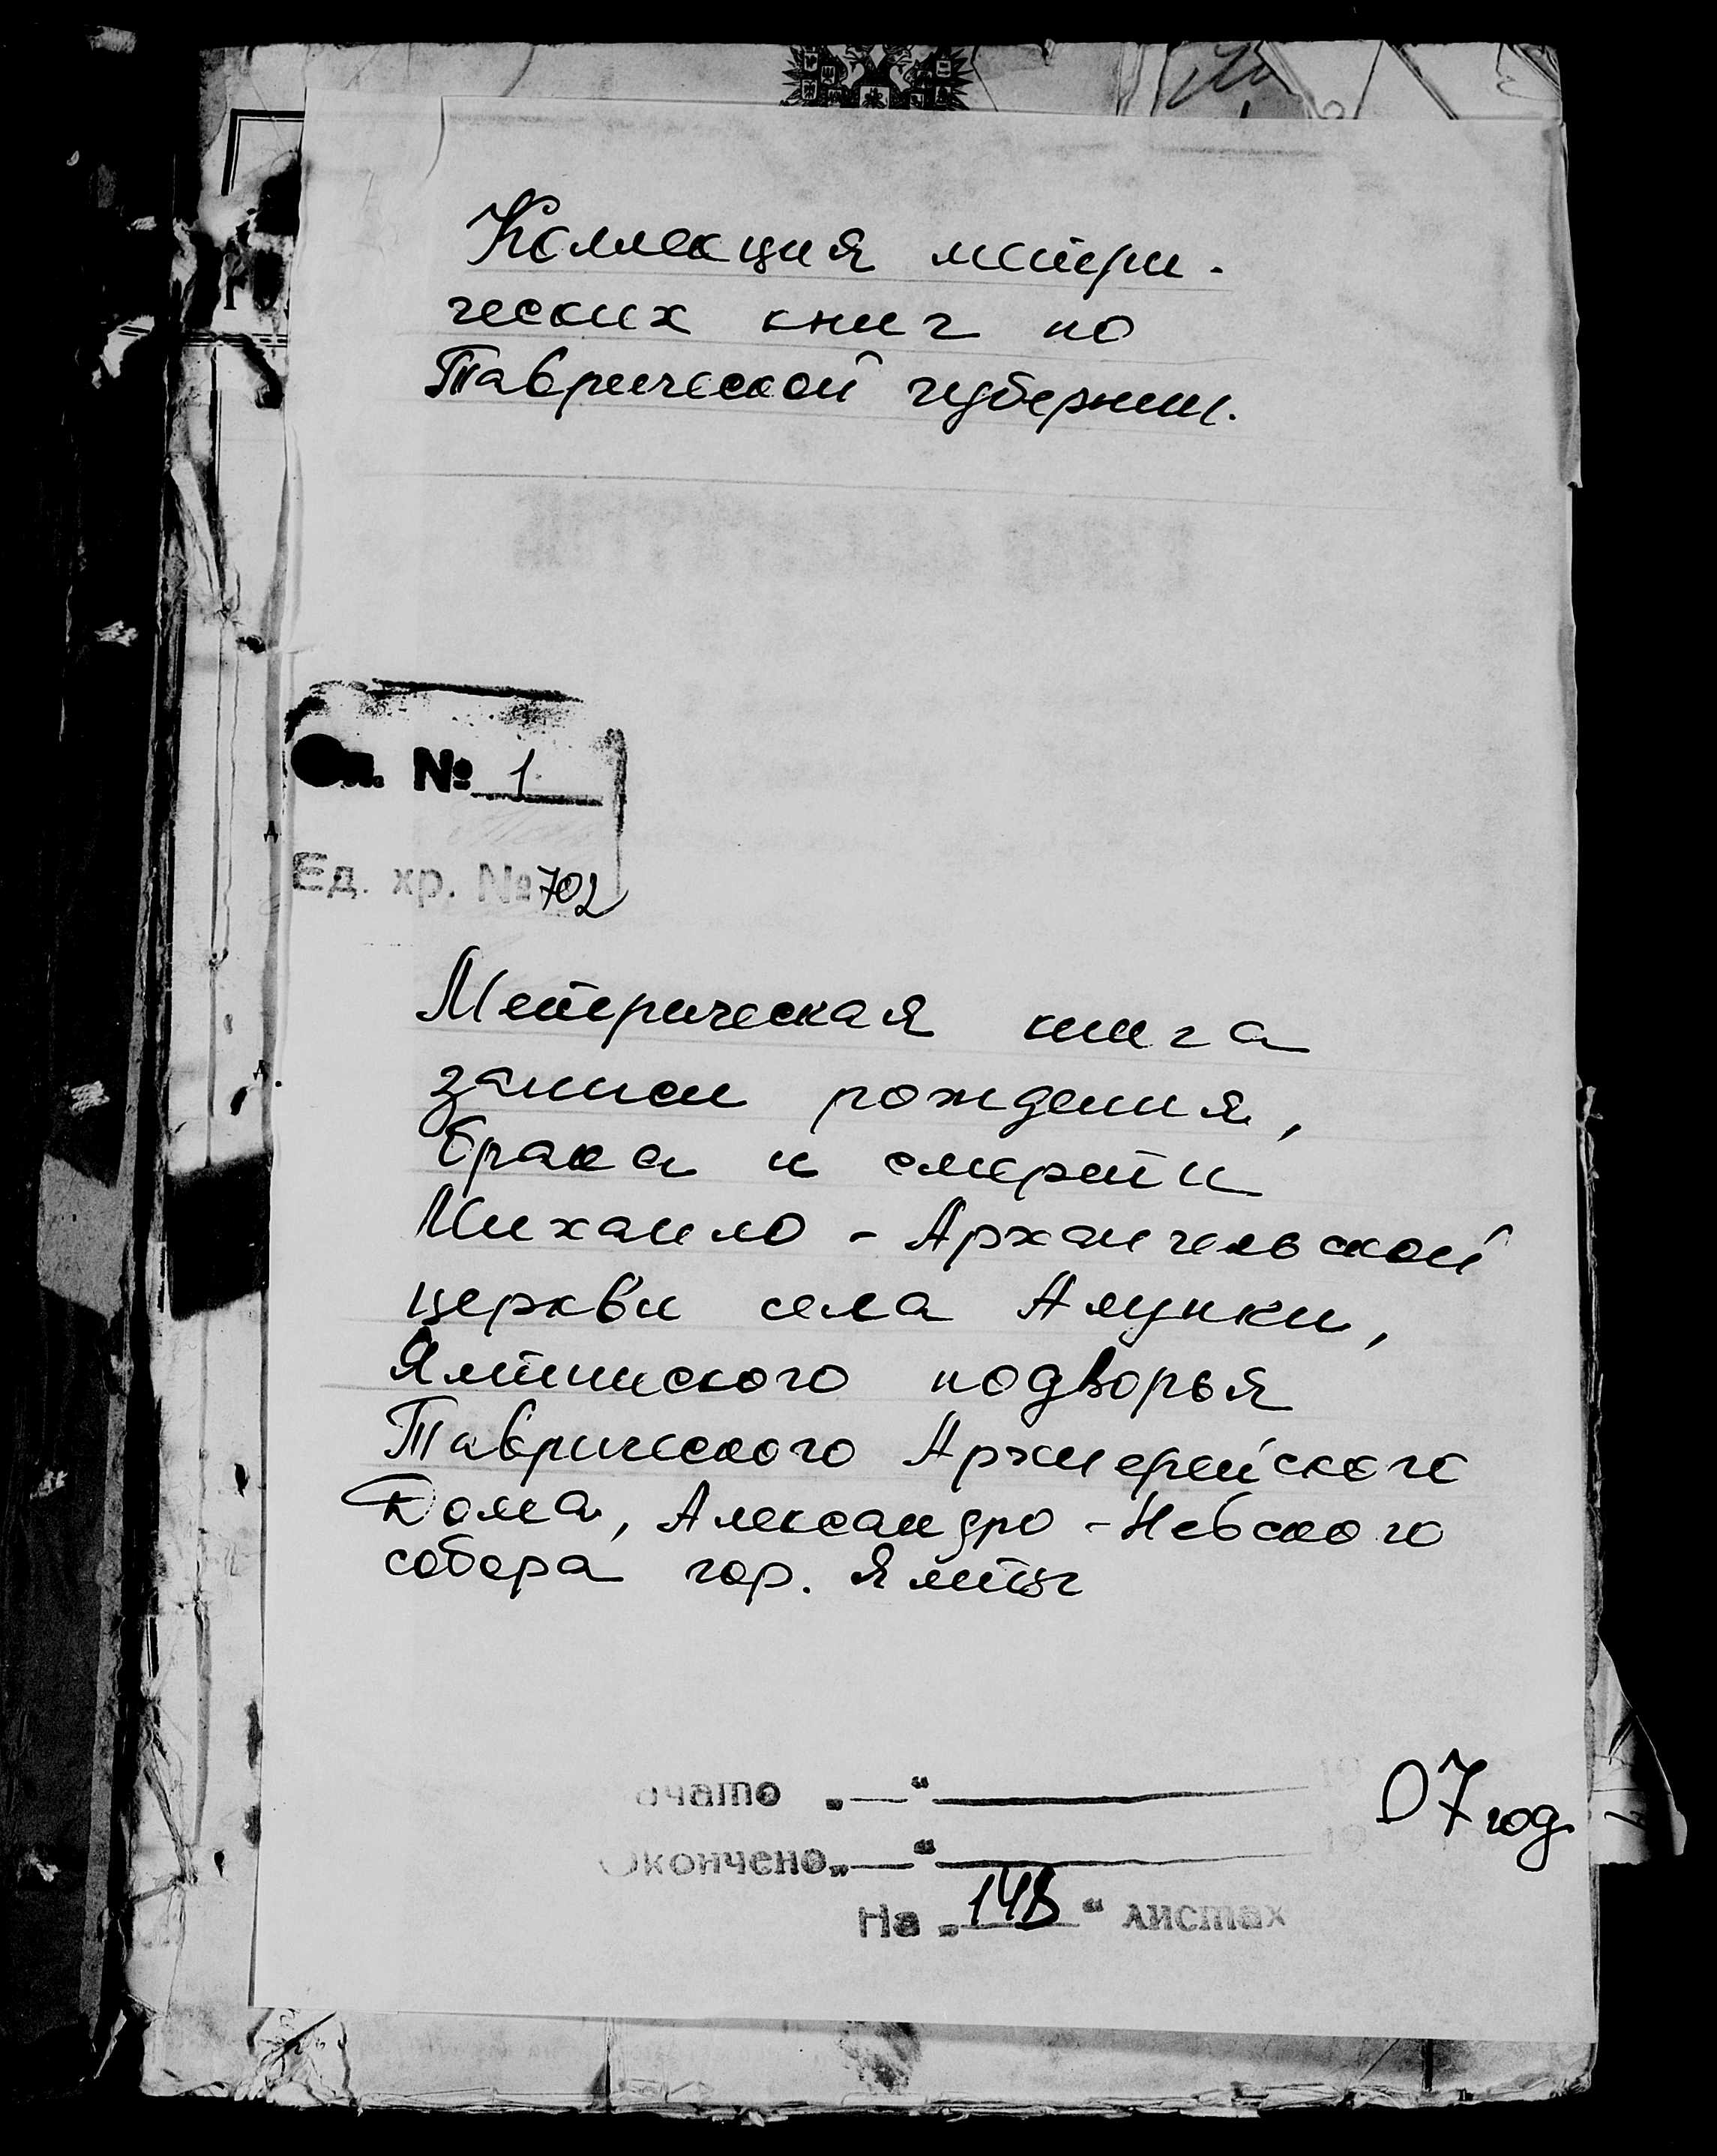 Коллекция метри-
ческих книг по
Таврической губернии.
Оп. № 1
Ед. хр. № 702
Метрическая книга
записи рождения,
брака и смерти
Михаило - Архангельской
церкви села Алупки,
Ялтинского подворья
Таврического Архиерейского
Дома, Александро - Невского
собора гор. Ялты
ачато „—“ 19 07 год
Окончено „—“ 19
На „148“ листах